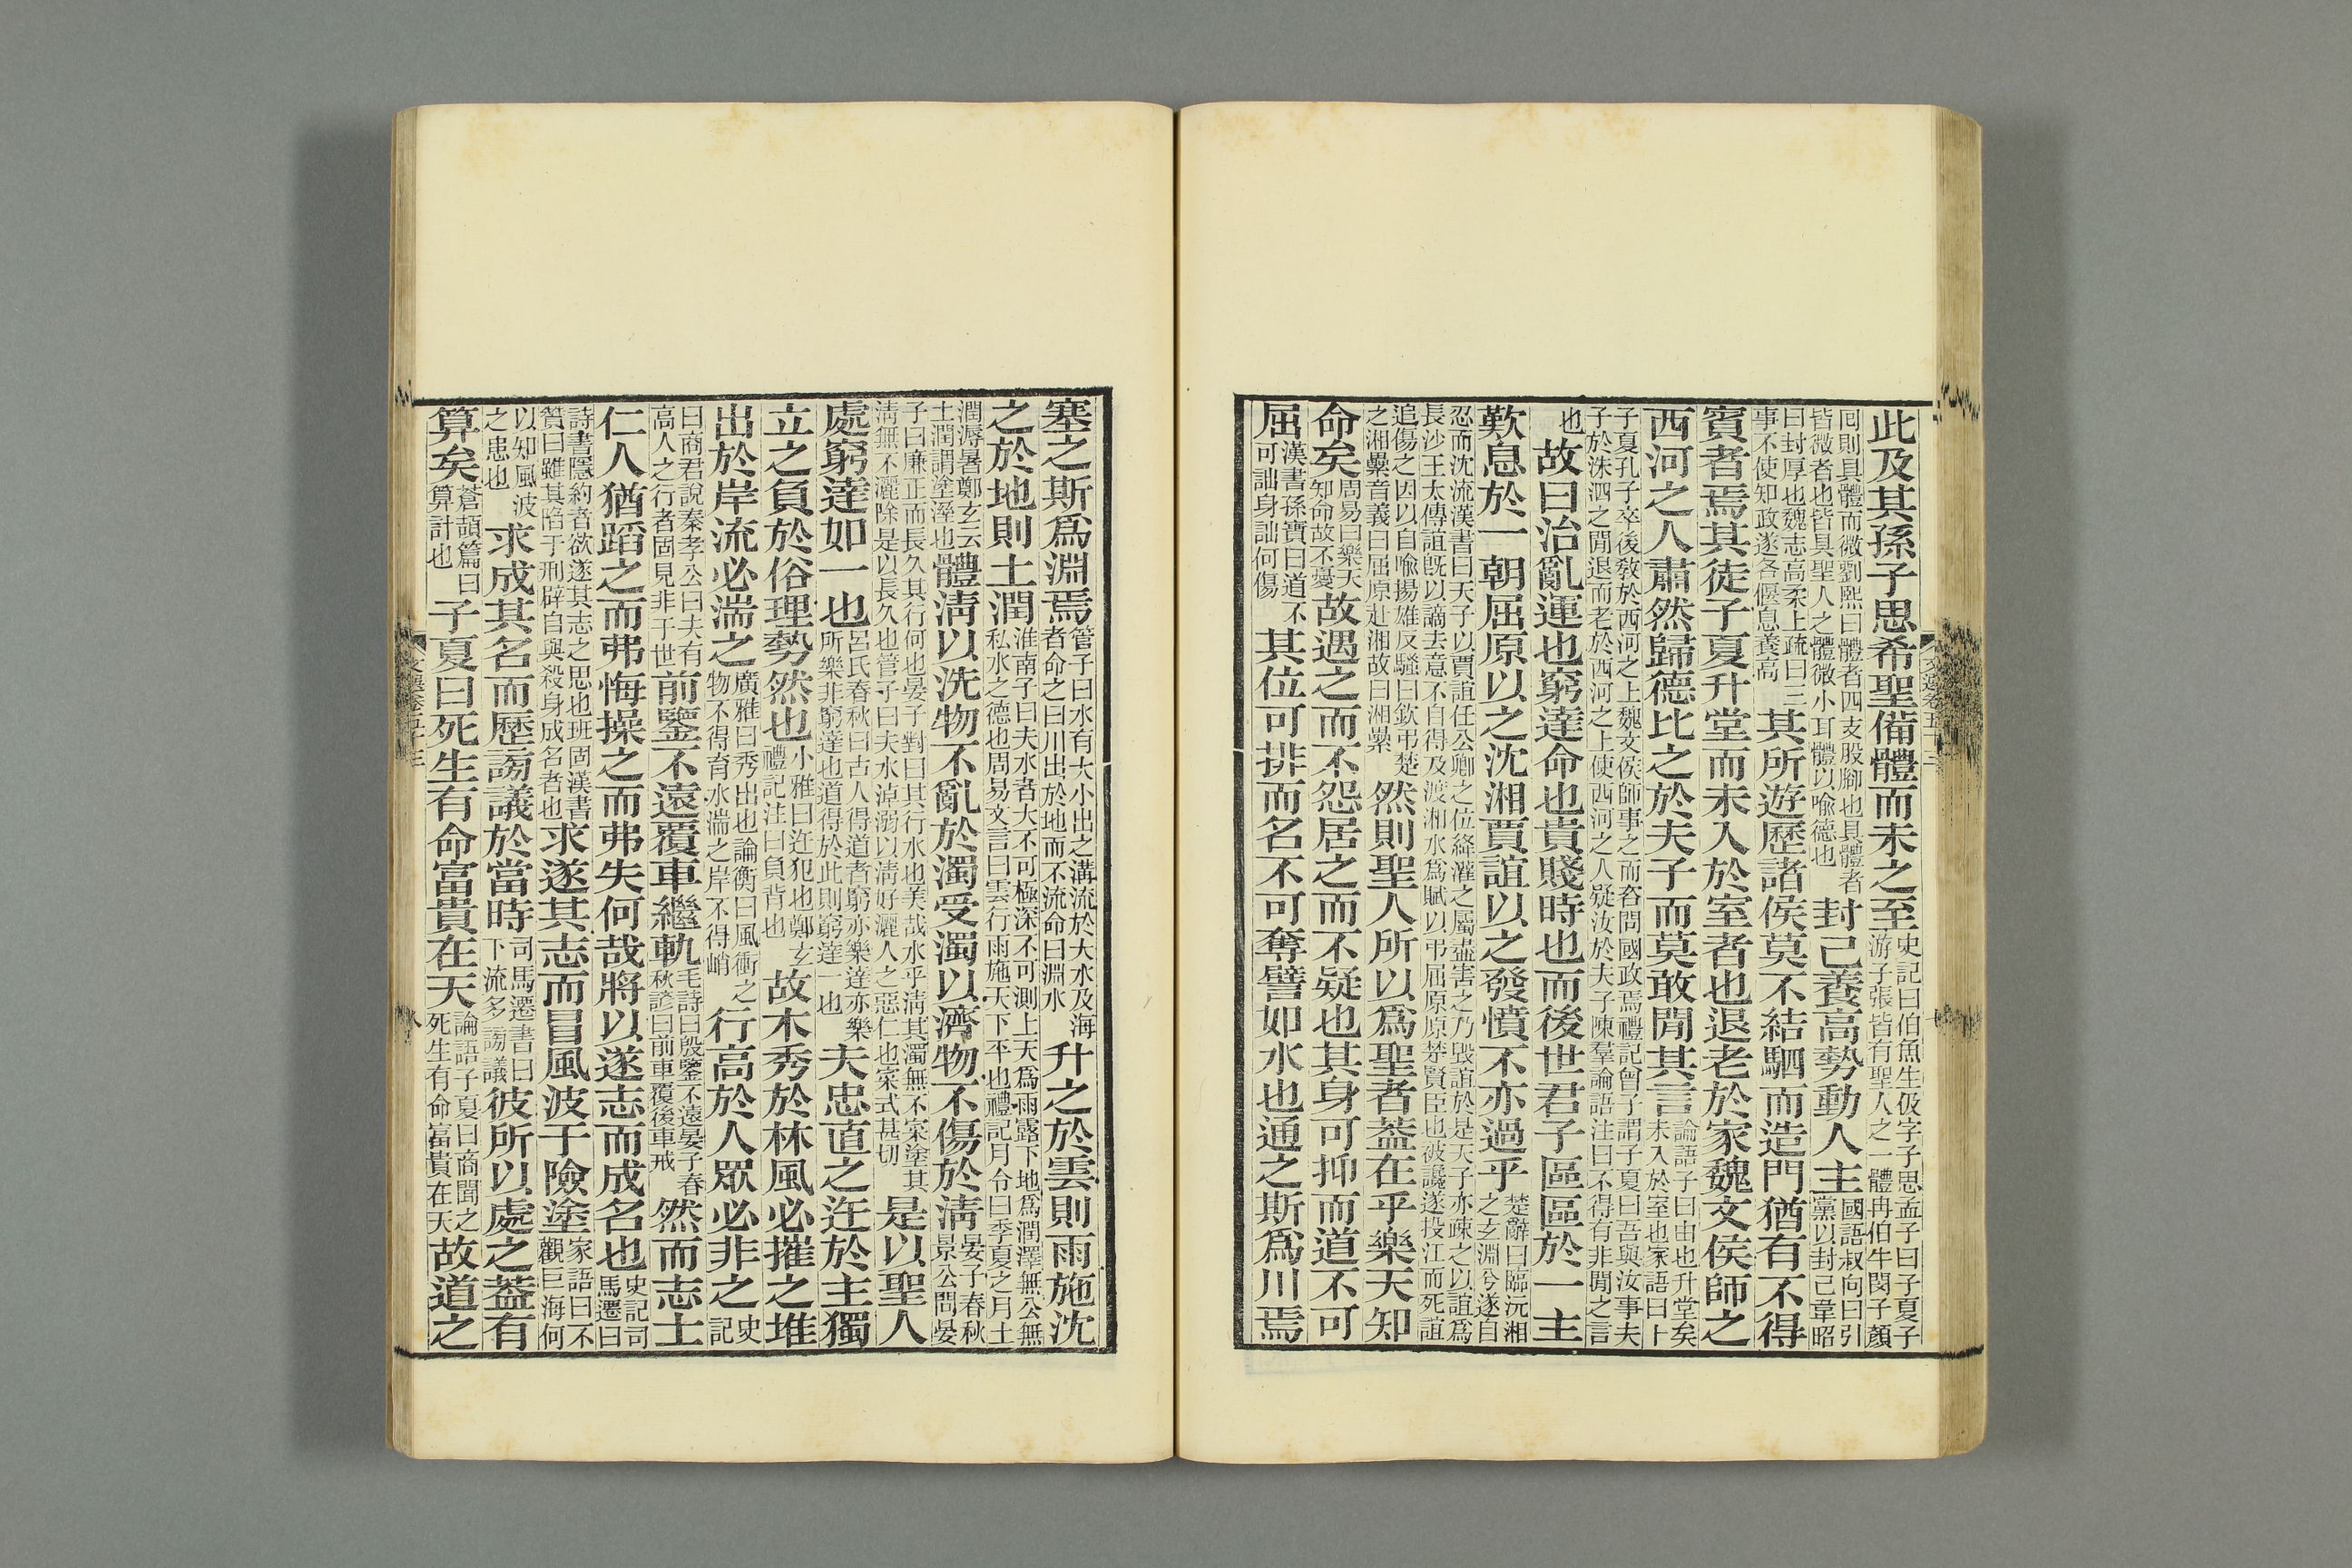 此及其孫子思希聖備體而未之至史記曰伯魚生伋字子思孟子曰子夏子游子張皆有聖人之一體冉伯牛閔子顏
囘則具體而微劉熙曰體者四支股腳也具體者皆微者也皆具聖人之體微小耳體以喻德也封己養高勢動人主國語叔向曰引黨以封己韋昭
曰封厚也魏志高柔上疏曰三事不使知政遂各偃息養高其所遊歷諸侯莫不結駟而造門猶有不得
賓者焉其徒子夏升堂而未入於室者也退老於家魏文侯師之
西河之人肅然歸德比之於夫子而莫敢閒其言論語子曰由也升堂矣未入於室也家語曰卜
子夏孔子卒後教於西河之上魏文侯師事之而咨問國政焉禮記曾子謂子夏曰吾與汝事夫子於洙泗之閒退而老於西河之上使西河之人疑汝於夫子陳羣論語注曰不得有非閒之言
也故曰治亂運也窮達命也貴賤時也而後世君子區區於一主
歎息於一朝屈原以之沈湘賈誼以之發憤不亦過乎楚辭曰臨沅湘之玄淵兮遂自
忍而沈流漢書曰天子以賈誼任公卿之位絳灌之屬盡害之乃毀誼於是天子亦疎之以誼爲長沙王太傅誼旣以謫去意不自得及渡湘水爲賦以弔屈原原楚賢臣也被讒遂投江而死誼
追傷之因以自喻揚雄反騷曰欽弔楚之湘纍音義曰屈原赴湘故曰湘纍然則聖人所以爲聖者蓋在乎樂天知
命矣周易曰樂天知命故不憂故遇之而不怨居之而不疑也其身可抑而道不可
屈漢書孫寶曰道不可詘身詘何傷其位可排而名不可奪譬如水也通之斯爲川焉
塞之斯爲淵焉管子曰水有大小出之溝流於大水及海者命之曰川出於地而不流命曰淵水升之於雲則雨施沈
之於地則土潤淮南子曰夫水者大不可極深不可測上天爲雨露下地爲潤澤無公無私水之德也周易文言曰雲行雨施天下平也禮記月令曰季夏之月土
潤溽暑鄭玄云土潤謂塗溼也體淸以洗物不亂於濁受濁以濟物不傷於淸晏子春秋景公問晏
子曰廉正而長久其行何也晏子對曰其行水也美哉水乎淸其濁無不寀塗其淸無不灑除是以長久也管子曰夫水淖溺以淸好灑人之惡仁也寀式甚切是以聖人
處窮達如一也呂氏春秋曰古人得道者窮亦樂達亦樂所樂非窮達也道得於此則窮達一也夫忠直之迕於主獨
立之負於俗理勢然也小雅曰迕犯也鄭玄禮記注曰負背也故木秀於林風必摧之堆
出於岸流必湍之廣雅曰秀出也論衡曰風衝之物不得育水湍之岸不得峭行高於人眾必非之史記
曰商君說秦孝公曰夫有高人之行者固見非于世前鑒不遠覆車繼軌毛詩曰殷鑒不遠晏子春秋諺曰前車覆後車戒然而志士
仁人猶蹈之而弗悔操之而弗失何哉將以遂志而成名也史記司馬遷曰
詩書隱約者欲遂其志之思也班固漢書贊曰雖其陷于刑辟自與殺身成名者也求遂其志而冒風波于險塗家語曰不觀巨海何
以知風波之患也求成其名而歷謗議於當時司馬遷書曰下流多謗議彼所以處之蓋有
算矣蒼頡篇曰算計也子夏曰死生有命富貴在天論語子夏曰商聞之死生有命富貴在天故道之